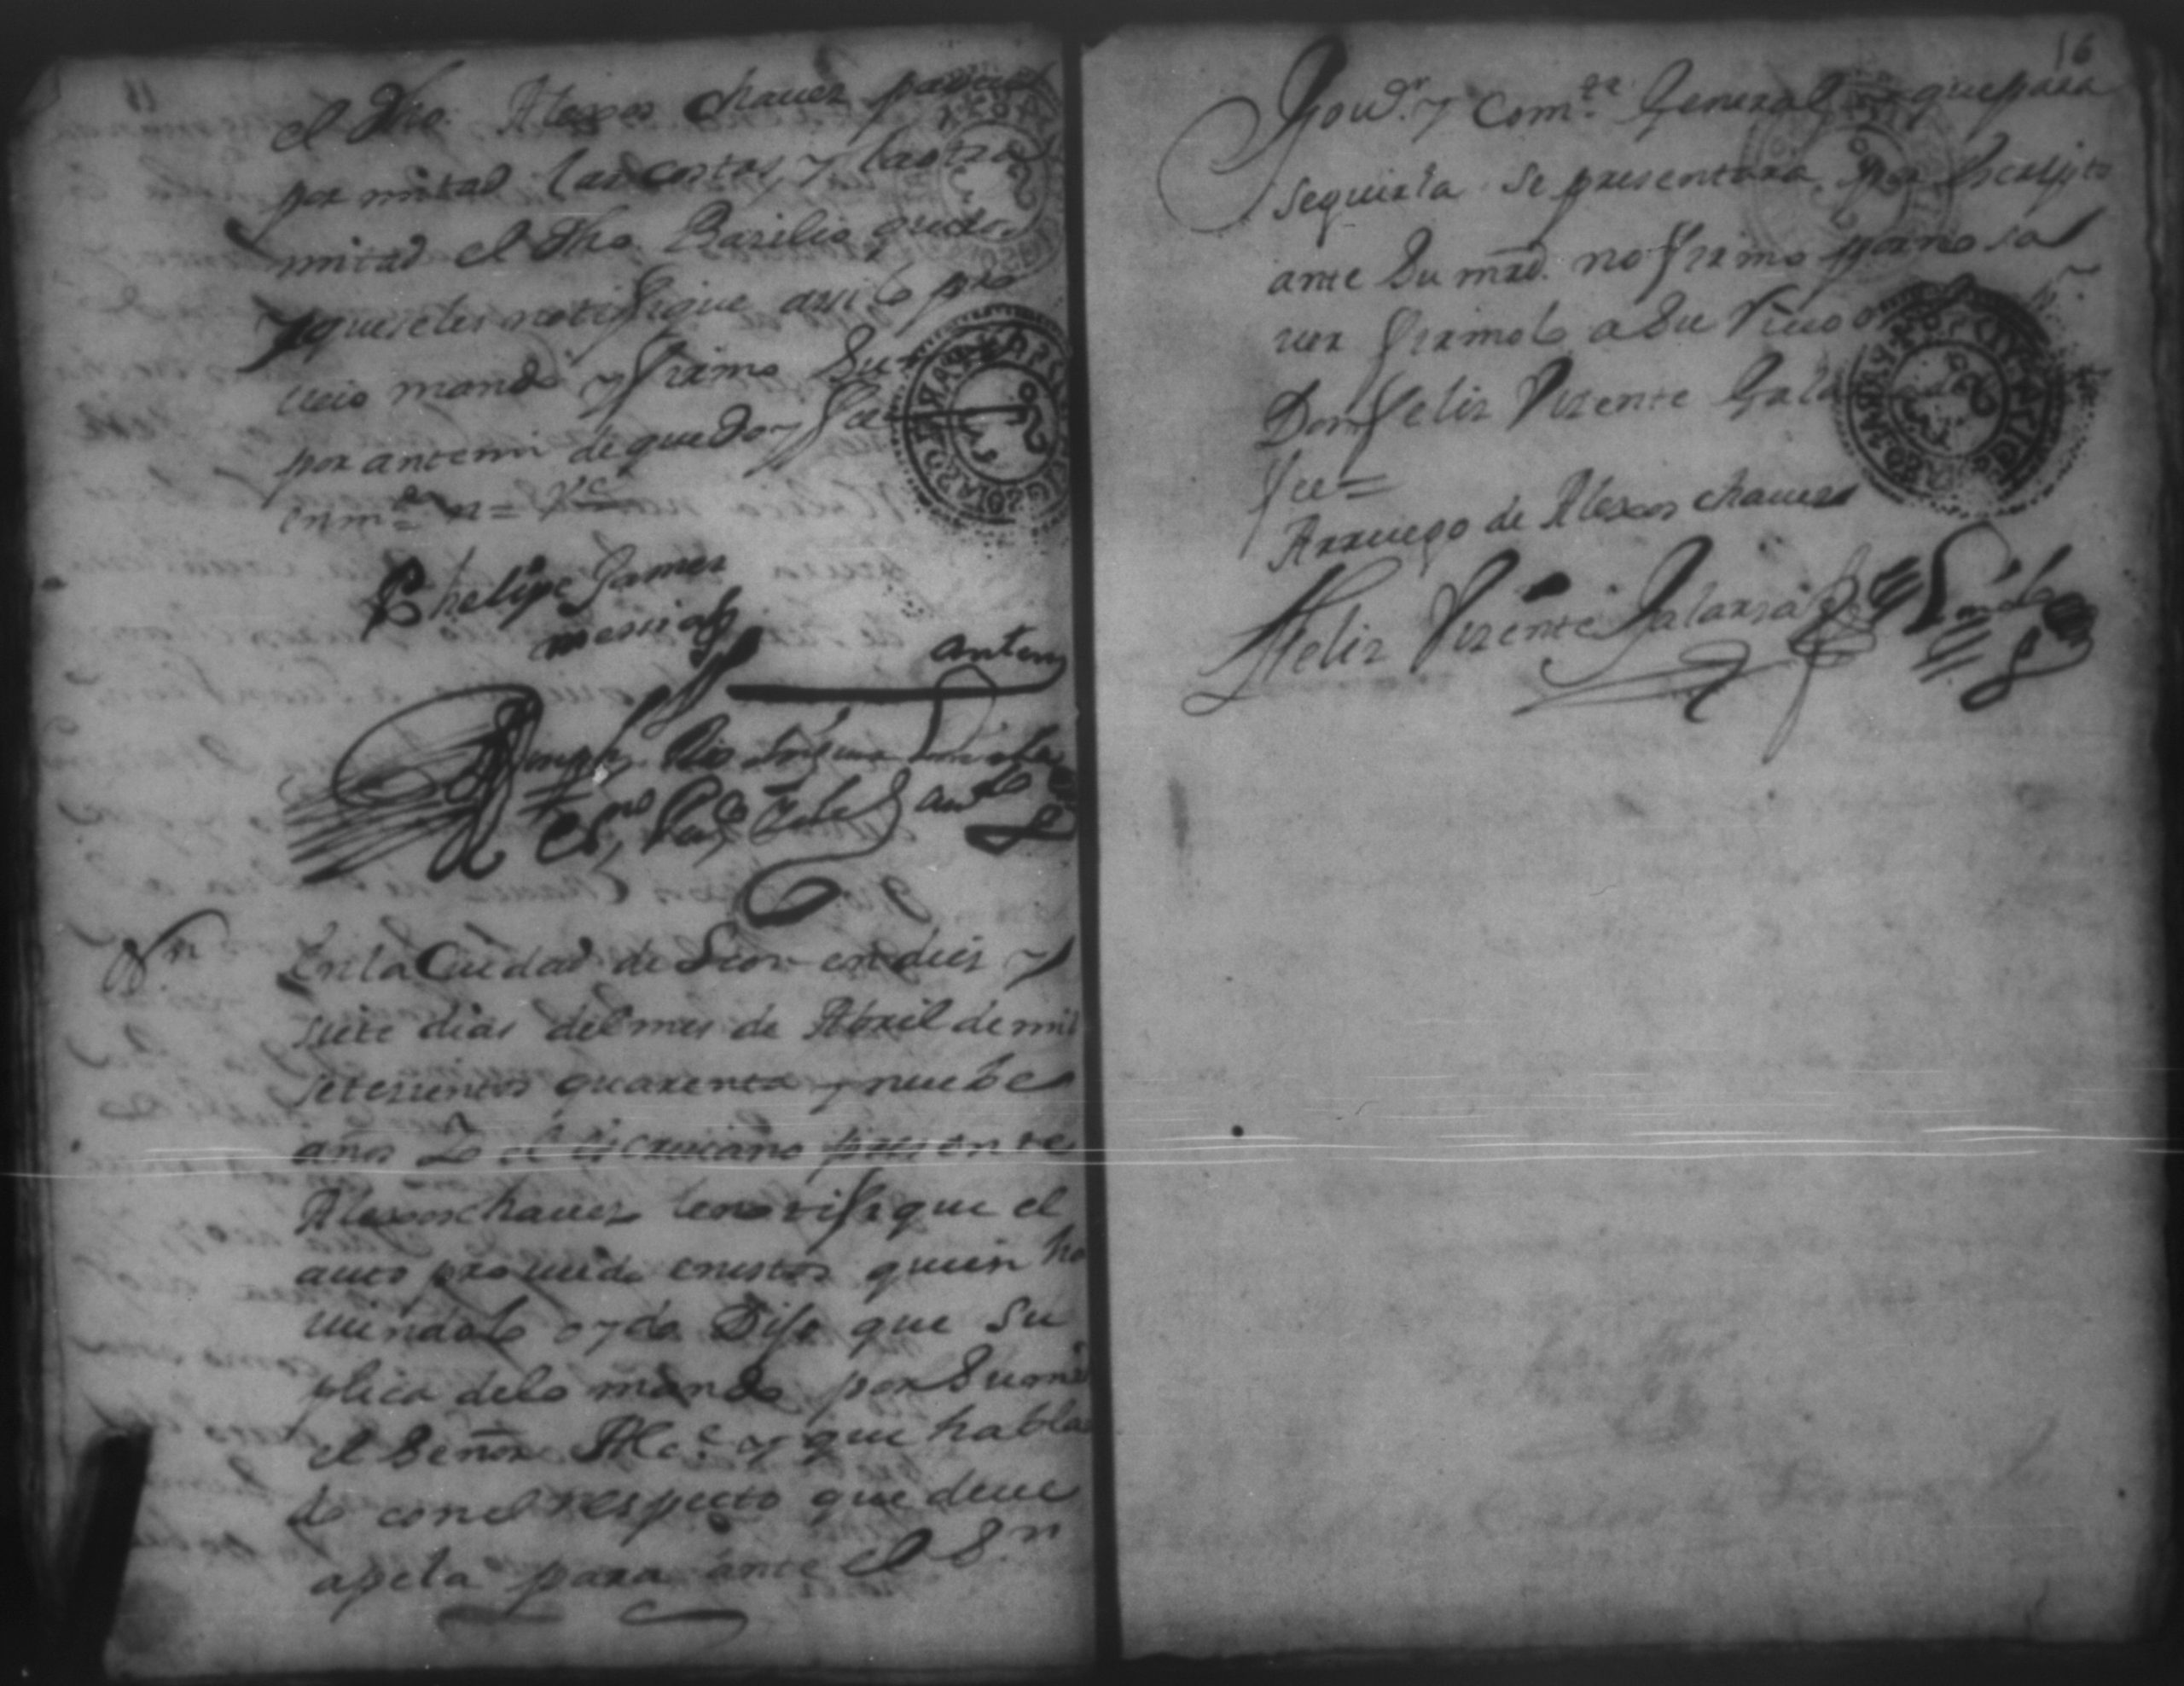 el dho. Alexos chauez pague
por mitad las costas, y la otra
mitad el dho. Basilio
y que se les notifique assi lo pro
ueio mando y firmo Su
por antemi de que doy fee
Phelipe Gamez
mesia
antemi
En la Ciudad de Leon en diez y
siete dias del mes de Abril de mil
setesientos quarenta y nuebe
años Yo el escriuano presente
Alexos chauez le notifique el
auto proueido en estos quien ha
uiendolo oydo Dijo que su
plica delo mando por su md
el Señor Alce. y que habla
do con el respecto que deue
apela para ante el Sn
16
Gouor. y Come. General y que para
seguirla se presentara por escripto
ante Su mrd. no firmo por no sa
uer firmolo a Su ruego
Don felix Vizente Gala
fee=
Arruego de Alexos chauez
Felix Vizente Galarza